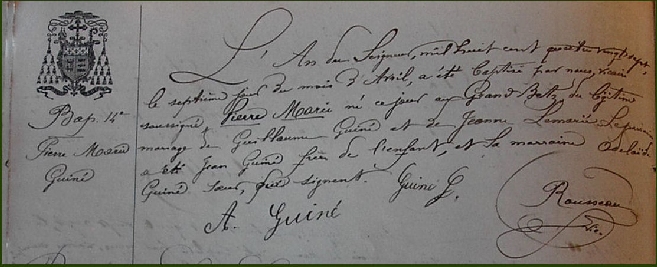 L'An du Seigneur, mil huit cent quatre vingt sept,
le septième jour du mois d'Avril, a été baptisé par nous, vicaire
soussigné, Pierre Marie né ce jour au Grand du légitime
mariage de Guillaume Guiné et de Jeanne Lamarie
a été Jean Guiné frère de l'enfant, et la marraine Adelaide
Guiné soeur, signent Guiné G.
A. Guiné
Rousseau
Vic.
Bap. 14e
Pierre Marie
Guiné